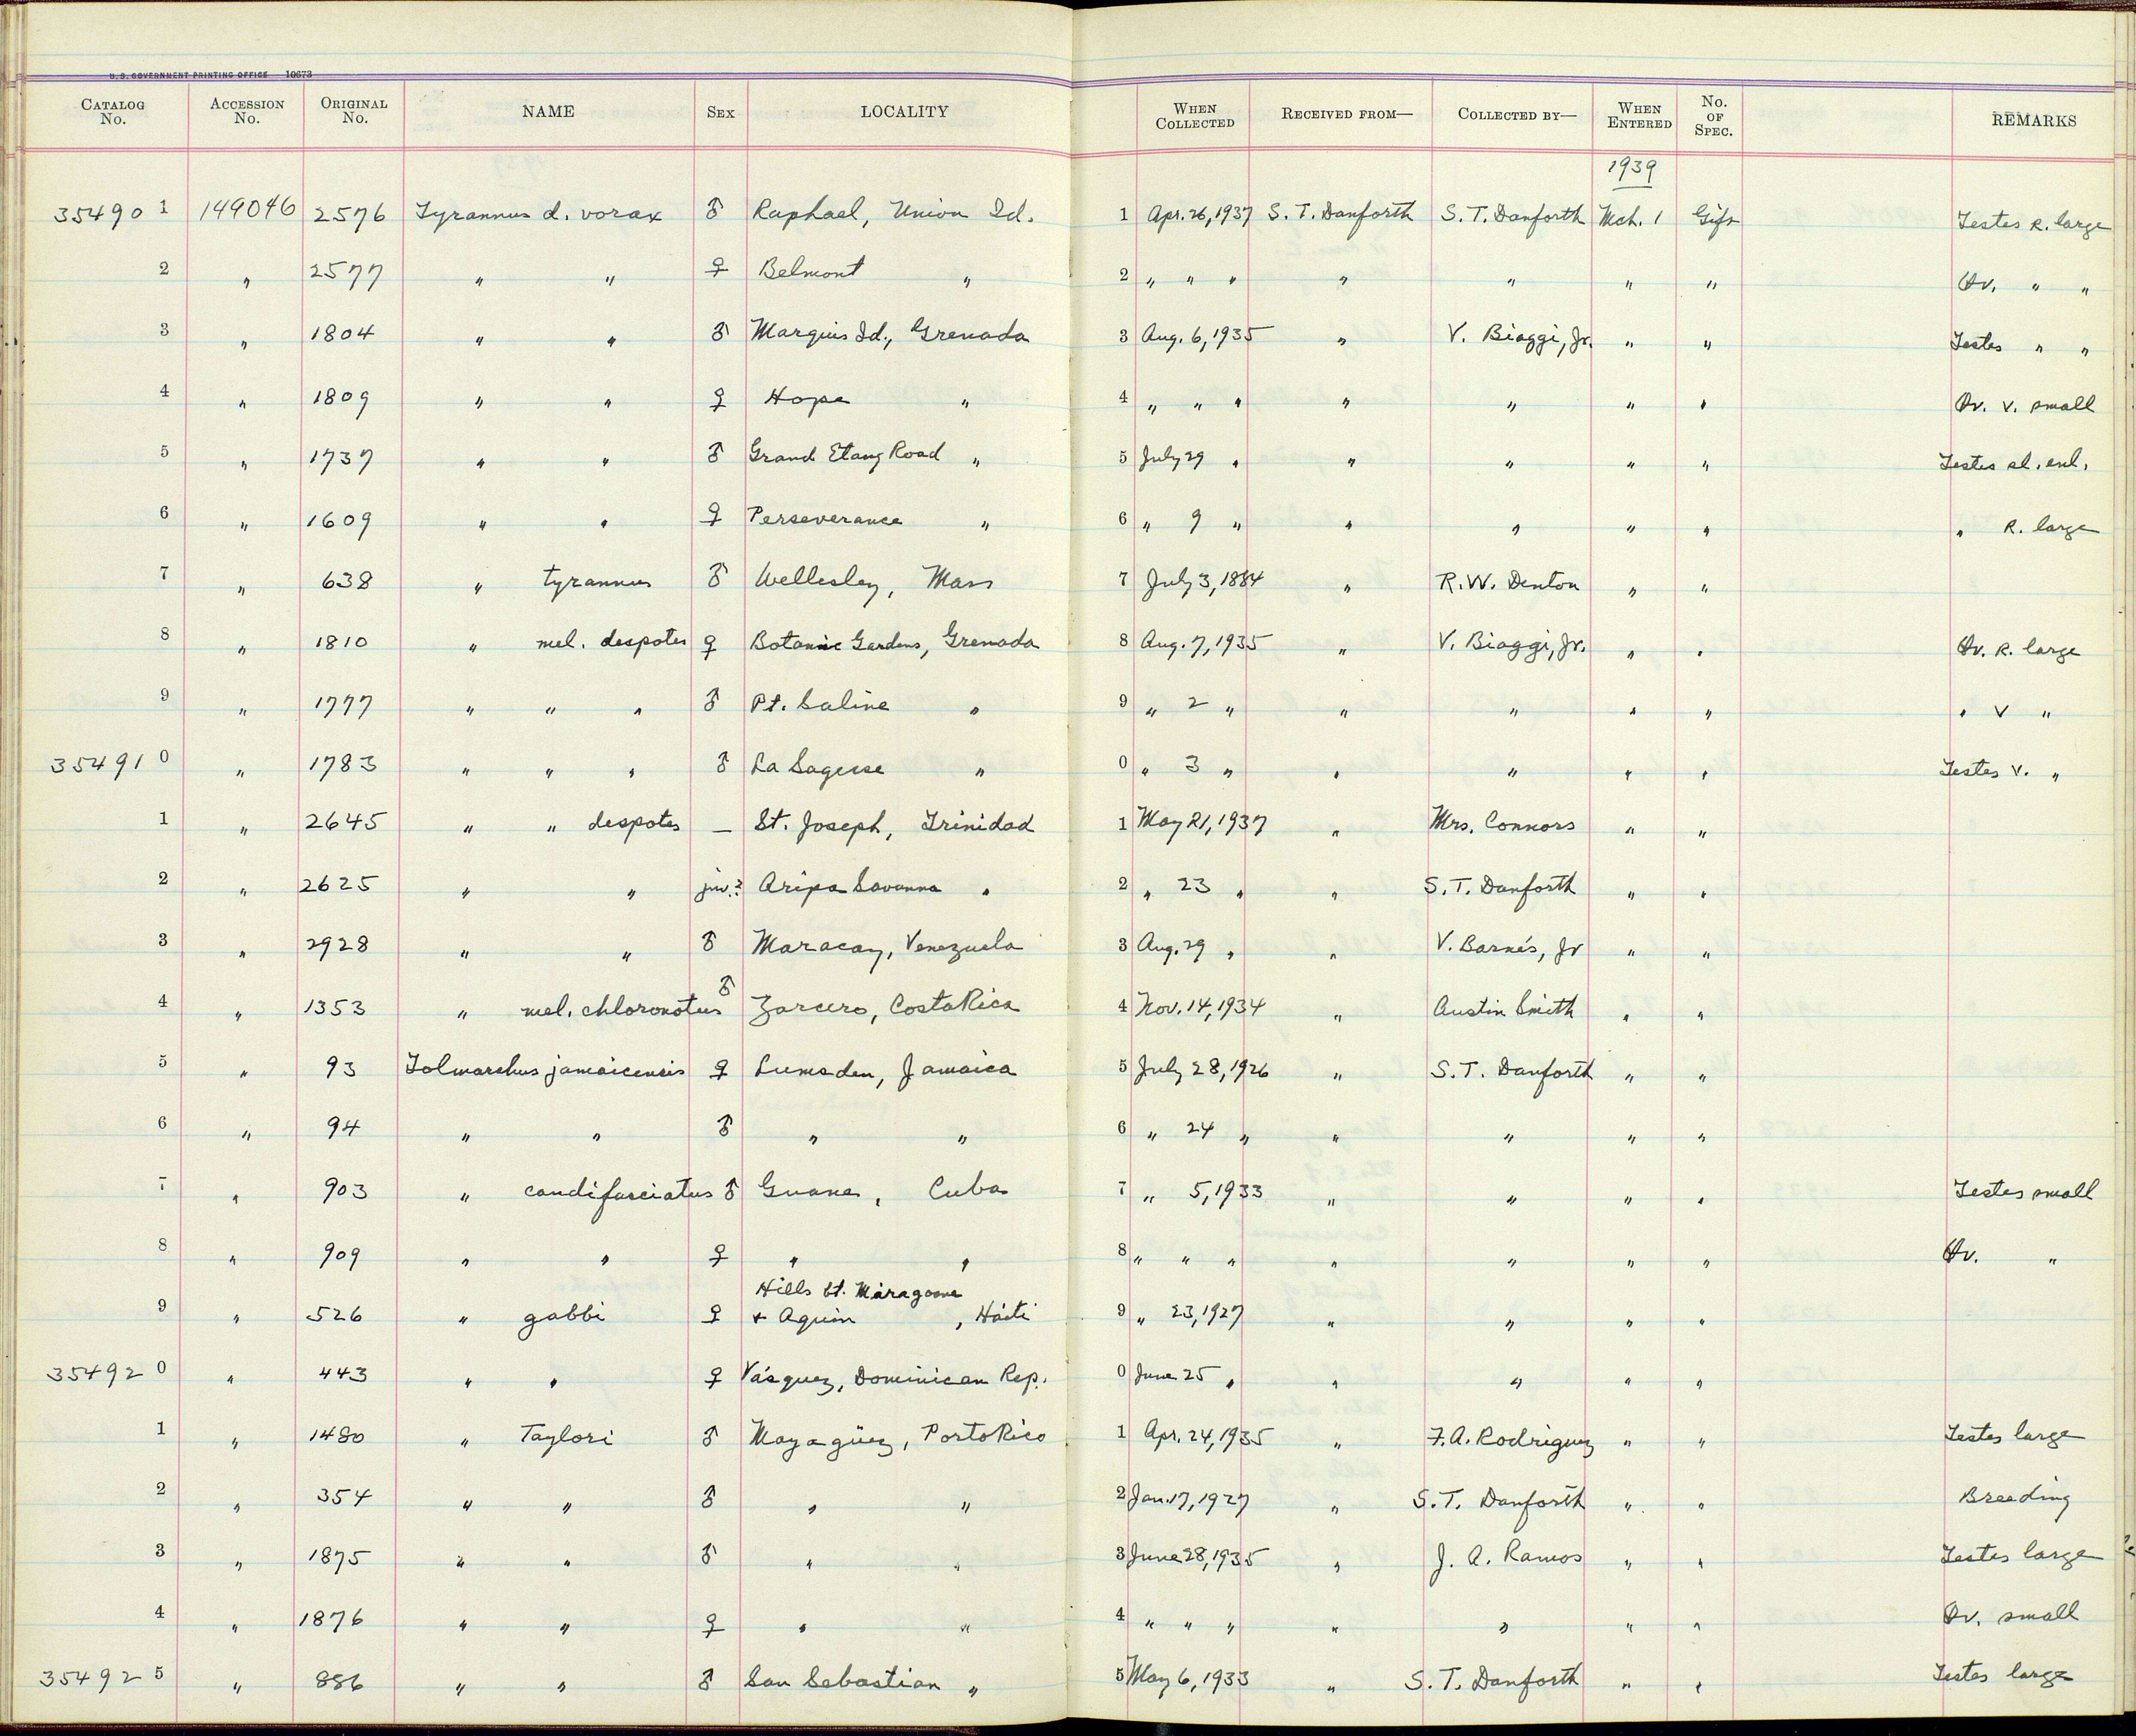 U.S. GOVERNMENT PRINTING OFFICE 10673
CATALOG No. ACCESSION No. ORIGINAL No. NAME SEX LOCALITY WHEN COLLECTED RECEIVED FROM— COLLECTED BY— WHEN ENTERED No. OF SPEC. REMARKS
1939
35490 1 149046 2576 Tyrannus d. vorax ♂ Raphael, Union Id. 1 Apr. 26, 1937 S. T. Danforth S. T. Danforth Mch. 1 Gift Testes R. large
2 " 2577 " " ♀ Belmont " 2 " " " " " " " Ov. " "
3 " 1804 " " ♂ Marquis Id., Grenada 3 Aug. 6, 1935 " V. Biaggi, Jr. " " Testes " "
4 " 1809 " " ♀ Hope " 4 " " " " " " " Ov. v. small
5 " 1737 " " ♂ Grand Etang Road " 5 July 29 " " " " " Testes sl. enl.
6 " 1609 " " ♀ Perseverance " 6 " 9 " " " " " " R. large
7 " 638 " tyrannus ♂ Wellesley, Mass 7 July 3, 1884 " R. W. Denton " "
8 " 1810 " mel. despotes ♀ Botanic Gardens, Grenada 8 Aug. 7, 1935 " V. Biaggi, Jr. " " Ov. R. large
9 " 1777 " " " ♂ Pt. Saline " 9 " 2 " " " " " " V "
35491 0 " 1783 " " " ♂ La Sagesse " 0 " 3 " " " " " Testes V. "
1 " 2645 " " despotes — St. Joseph, Trinidad 1 May 21, 1937 " Mrs. Connors " "
2 " 2625 " " juv.? Aripa Savanna " 2 " 23 " " S. T. Danforth " "
3 " 2928 " " ♂ Maracay, Venezuela 3 Aug. 29 " " V. Barnés, Jr " "
4 " 1353 " mel. chloronotus ♂ Zarcero, Costa Rica 4 Nov. 14, 1934 " Austin Smith " "
5 " 93 Tolmarchus jamaicensis ♀ Lumsden, Jamaica 5 July 28, 1926 " S. T. Danforth " "
6 " 94 " " ♂ " " 6 " 24 " " " " "
7 " 903 " caudifasciatus ♂ Guane, Cuba 7 " 5, 1933 " " " " Testes small
8 " 909 " " ♀ " " 8 " " " " " " " Ov. "
9 " 526 " gabbi ♀ Hills bt. Miragoane
& Aquin, Haiti 9 " 23, 1927 " " " "
35492 0 " 443 " " ♀ Vásquez, Dominican Rep. 0 June 25 " " " " "
1 " 1480 " Taylori ♂ Mayagüez, Porto Rico 1 Apr. 24, 1935 " F. A. Rodriguez " " Testes large
2 " 354 " " ♂ " " 2 Jan. 17, 1927 " S. T. Danforth " " Breeding
3 " 1875 " " ♂ " " 3 June 28, 1935 " J. A. Ramos " " Testes large
4 " 1876 " " ♀ " " 4 " " " " " " " Ov. small
35492 5 " 886 " " ♂ San Sebastian " 5 May 6, 1933 " S. T. Danforth " " Testes large